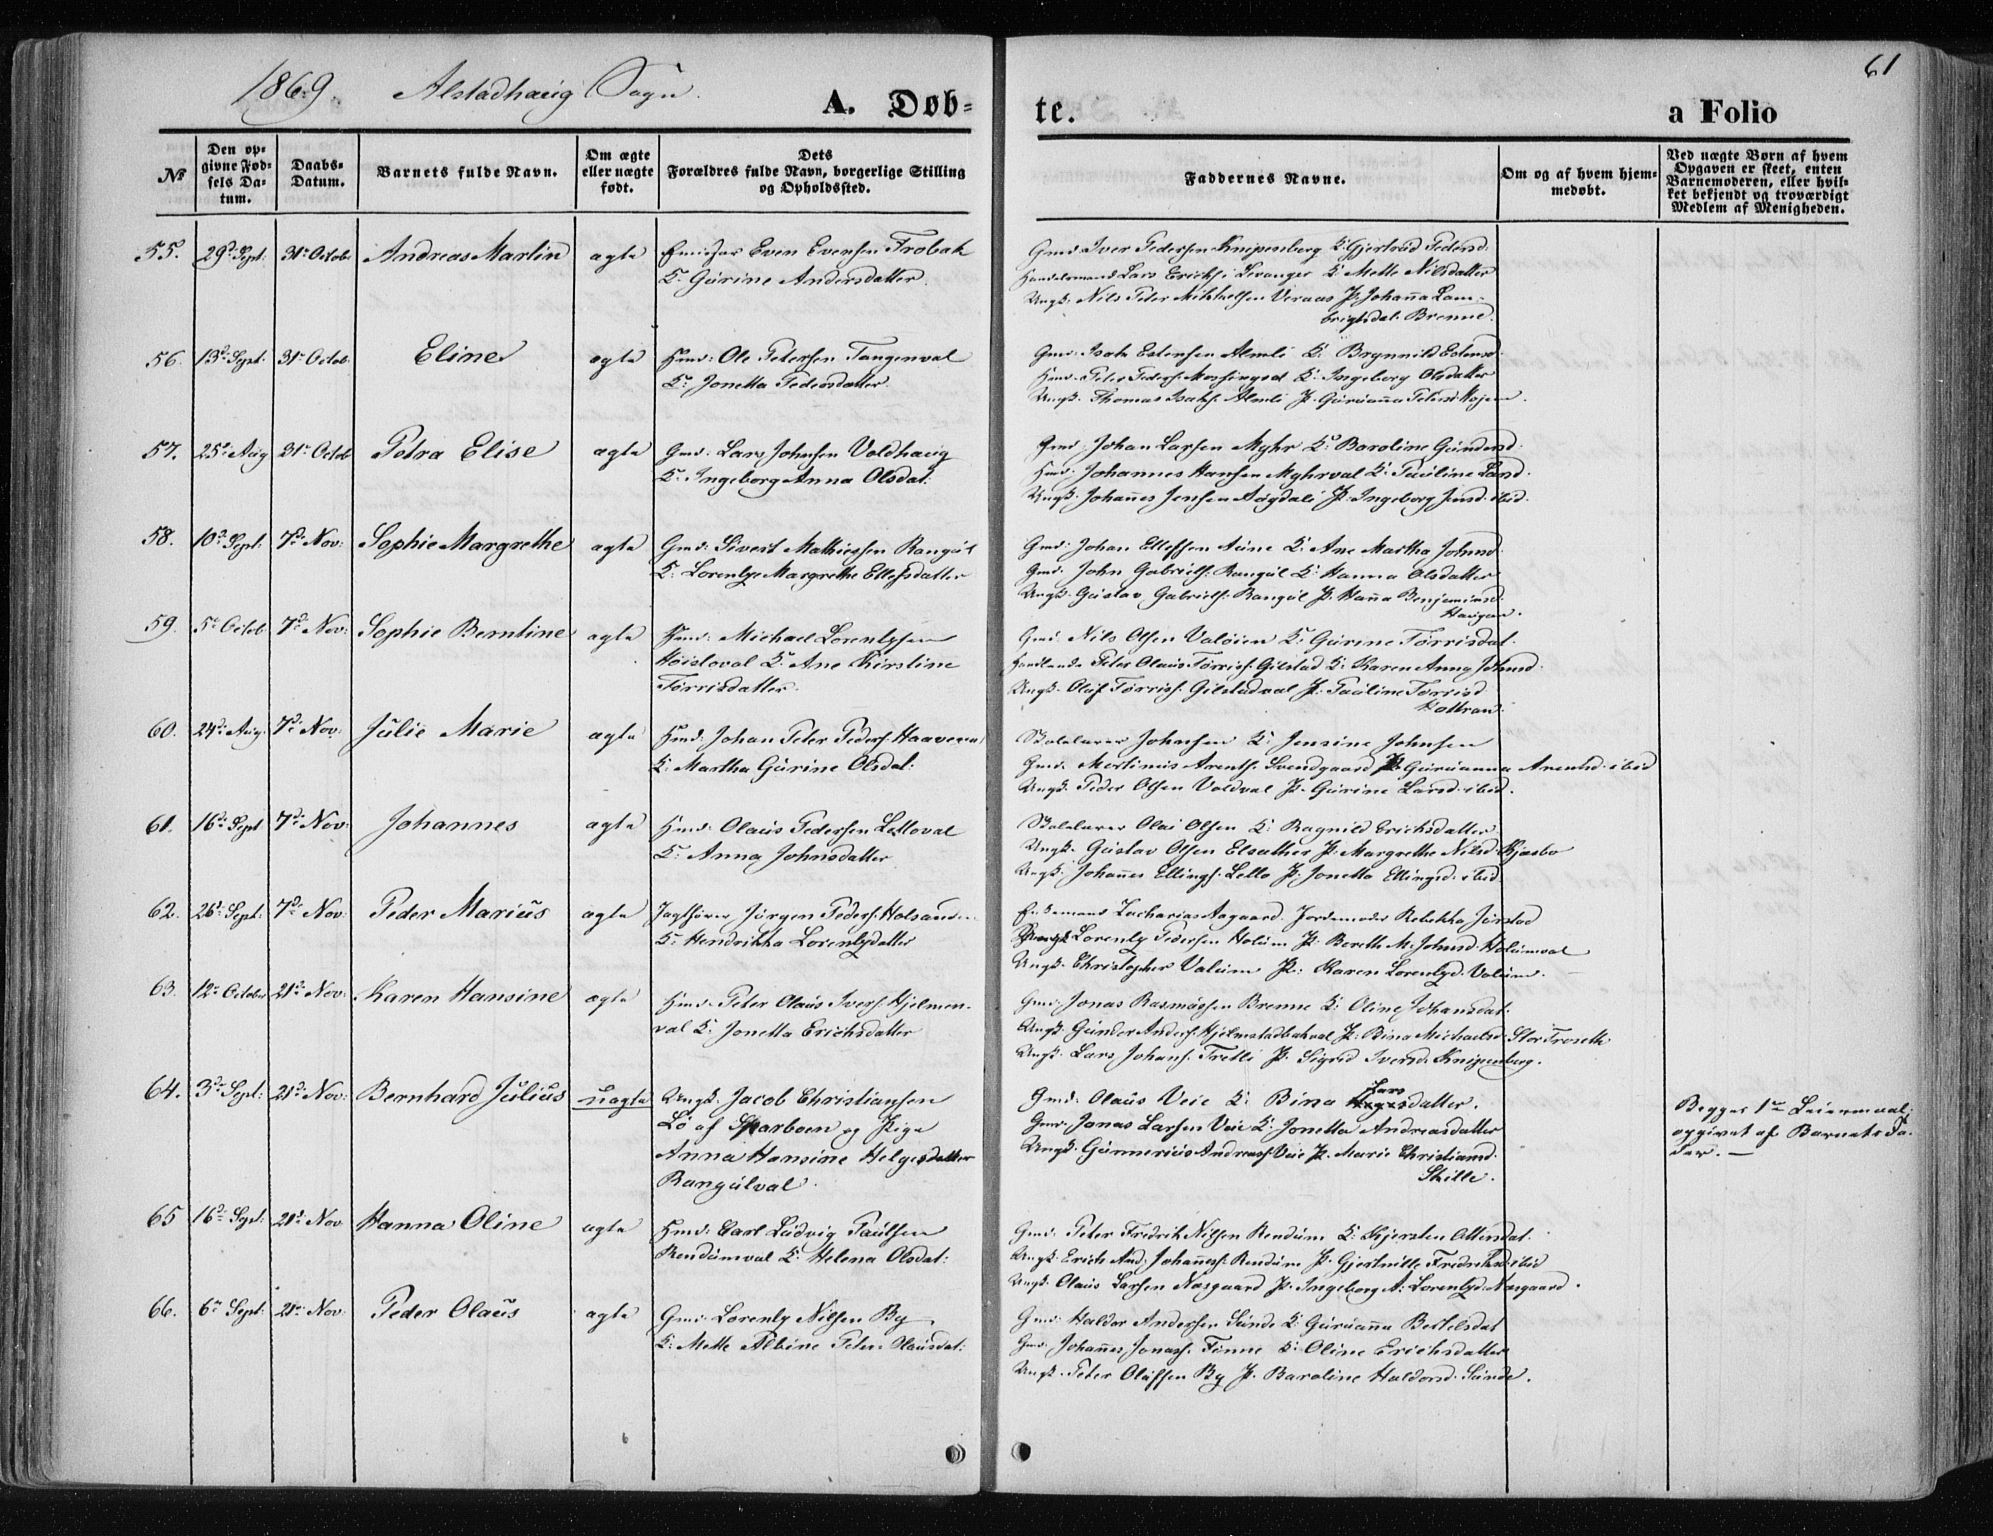 1869. Alstadhaug Sogn.
A. Døb-
te.
a Folio
61
No
Den op-
givne Fød-
sels Da-
tum.
Daabs-
Datum.
Barnets fulde Navn.
Om ægte
eller uægte
født.
Dets
Forældres fulde Navn, borgerlige Stilling
og Opholdssted.
Faddernes Navne.
Om og af hvem hjem-
medøbt.
Ved uægte Børn af hvem
Opgaven er skeet, enten
Barnemoderen, eller hvil-
ket bekjendt og troværdigt
Medlem af Menigheden.
55. 29d: Sept: 31te Octob Andreas Martin ægte Even Evensen Trobak
K: Gurine Andersdatter.
Gmd: Iver Pedersen Knipenberg K: Gjertrød Pedersd:
Handelsmand Lars Erichs: Levanger K: Mette Nilsdatter
Ungk: Nils Peter Mikkelsen Veraas P: Johanna Lam-
brigtsdat: Brenne.
56. 13d: Sept: 31te Octob: Eline ægte Hmd: Ole Petersen Tangenval
K: Jonetta Pedersdatter.
Gmd: Isak Estensen Almli K: Brynnild Estensd:
Hmd: Peter Peders: K: Ingeborg Olsdatter
Ungk: Thomas Isaks: Almli P: Guruanna Petersd:
57. 25d: Aug 31te Octob Petra Elise ægte Gmd: Lars Johnsen Voldhaug
K: Ingeborg Anna Olsdat:
Gmd: Johan Larsen Myhr K: Baroline Gundersd:
Hmd: Johannes Hansen Myhrval K: Pauline Larsd:
Ungk: Johannes Jensen Aagdali P: Ingeborg Jensd: ibid.
58. 10d: Sept: 7d: Nov: Sophie Margrethe ægte Gmd: Sivert Mathiessen Rangul
K: Lorentze Margrethe Ellefsdatter
Gmd: Johan Elleffsen Aune K: Ane Martha Johnsd:
Gmd: John Gabriels: Rangul K: Hanna Olsdatter
Ungk: Gustav Gabriels: Rangul P: Hanna Benjaminsd:
Haugan.
59. 5te Octob 7d: Nov: Sophie Berntine ægte Hmd: Michael Lorentzsen
Høistoval K: Ane Kirstine
Torrisdatter.
Gmd: Nils Olsen Valøien K: Gurine Torrisdat:
Handlende Peter Olaus Torriss: Gilstad K: Karen Anna Johnsd:
Ungk: Oluf Torriss: Gilstadval P: Pauline Torrisd
60. 24d: Aug: 7d: Nov: Julie Marie ægte Hmd: Johan Peter Peders: Haaveren
K: Martha Gurine Olsdat:
Skolelærer Johnsen K: Jensine Johnsen
Gmd: Martinus Arents: Svendgaard P: Guruanna Arentsd: ibid
Ungk: Peder Olsen Voldval P: Gurine Larsd: ibid.
61. 16d: Sept 7d: Nov: Johannes ægte Hmd: Olaus Pedersen Lelloval
K: Anna Johnsdatter
Skolelærer Olai Olsen K: Ragnild Erichsdatter
Ungk: Gustav Olsen Elsather P: Margrethe Nilsd: Kjæsbo
Ungk: Johannes Ellings: Lello P: Jonetta Ellingsd: ibid
62. 26d: Sept: 7d: Nov: Peder Marius ægte Jagtfører Jørgen Peders: Holsand
K: Hendrikka Lorentzdatter
Zacharias Aagaard. Jordemoder Rebekka Jørstad
Ungk: Lorentz Pedersen Holum P: Bereth M. Johnsd: Holumval
Ungk: Christopher Valum P: Karen Lorentzd: Valum.
63. 12te October 21de Nov: Karen Hansine ægte Hmd: Peter Olaus Ivers: Hjelmen-
val K: Jonetta Erichsdatter
Gmd: Jonas Rasmussen Brenne K: Oline Johansdat:
Ungk: Gunder Anders: Hjelmstadbakval P: Bina Michaelsd: Stor Troseth
Ungk: Lars Johans: Tretli P: Sigrid Iversd: Knipenberg.
64. 3d: Sept: 21de Nov: Bernhard Julius uægte Ungk: Jacob Christiansen
Lø af Sparboen og Pige
Anna Hansine Helgesdatter
Rangulval.
Gmd: Olaus Veie K: Bina Larsdatter.
Gmd: Jonas Larsen Veie K: Jonetta Andreasdatter
Ungk: Gunnerius Andreass: Veie P: Marie Christiansd:
Skille.
Begges 1ste Leiermaal;
opgivet af Barnets Fa-
der. —
65 16d: Sept: 21de Nov Hanna Oline ægte Hmd: Carl Ludvig Paulsen
Rendumval K: Helena Olsdat:
Gmd: Peter Fredrik Nilsen Rendum K: Kjersten Ottersdat:
Ungk: Erich And: Johanness: Rendum P: Gjertmille Fredriksd: ibid
Ungk: Olaus Larsen Næsgaard P: Ingeborg A: Lorentzd: Næsgaard.
66. 6te Sept: 21de Nov: Peder Olaus ægte Gmd: Lorentz Nilsen By
K: Mette Albine Peter Olausdat:
Gmd: Haldor Andersen Sunde K: Guruanna Bertelsdat
Gmd: Johannes Jonass: Finne K: Oline Erichsdatter
Ungk: Peter Oluffsen By P: Baroline Haldorsd: Sunde.